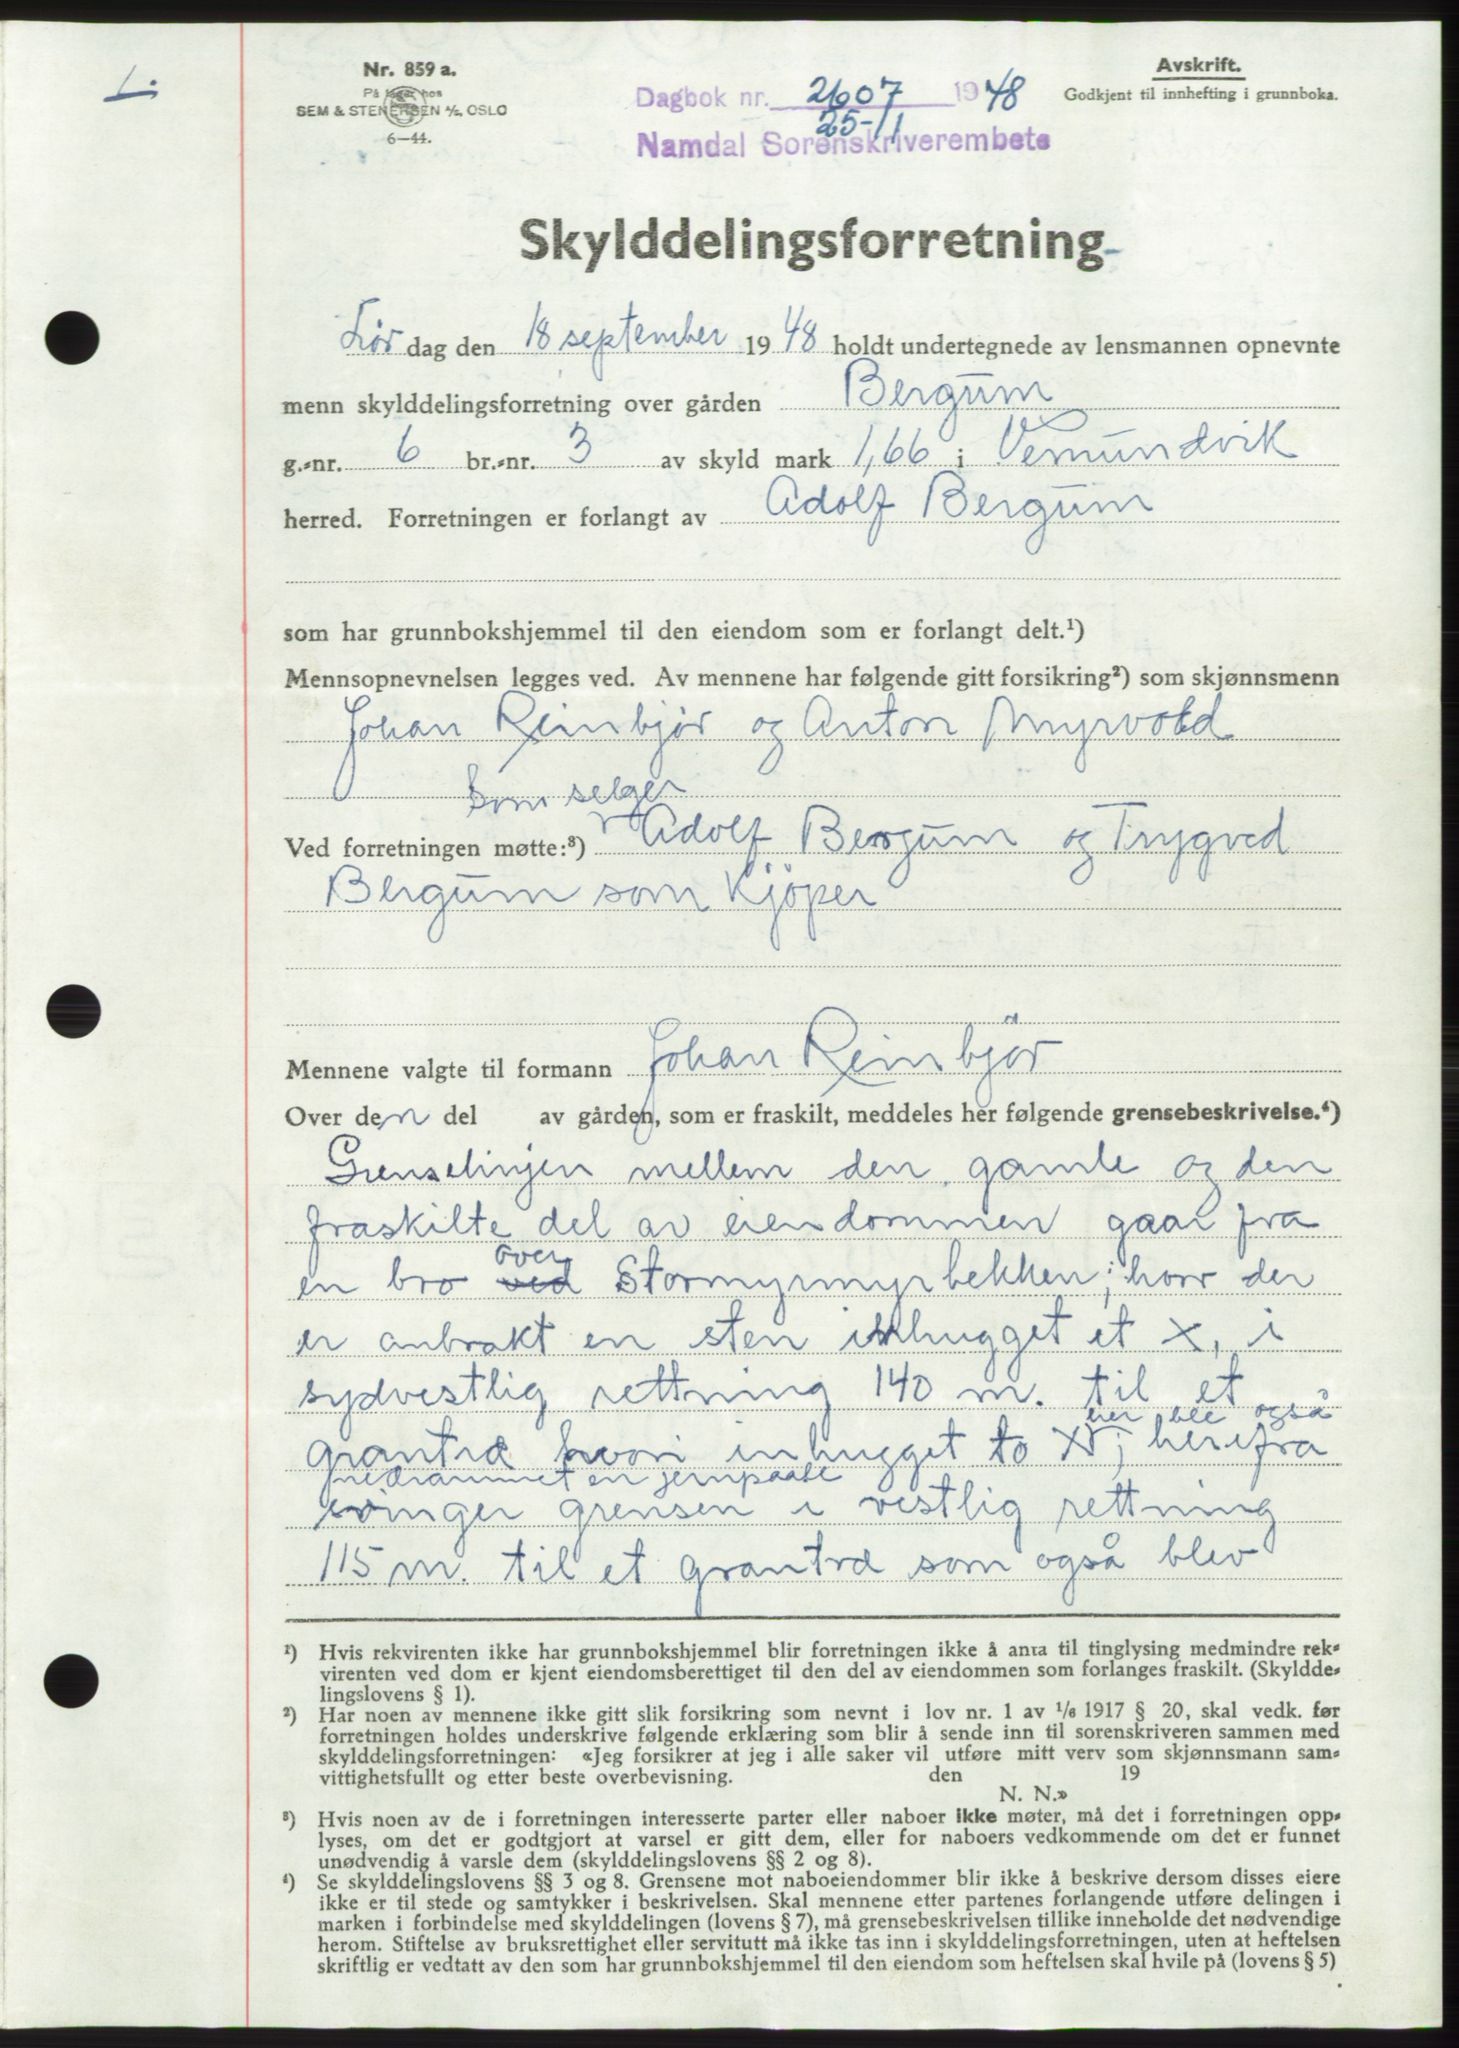 L:
Nr. 859 a.
På lager hos
SEM & STENERSEN A/S, OSLO
6—44.
Dagbok nr. 2607 1948
25-11
Namdal Sorenskriverembete
Avskrift.
Godkjent til innhefting i grunnboka.
Skylddelingsforretning
Lør dag den 18 september 1948 holdt undertegnede av lensmannen opnevnte
menn skylddelingsforretning over gården Bergum
g.-nr. 6 br.-nr. 3 av skyld mark 1,66 i Vemundvik
herred. Forretningen er forlangt av Adolf Bergum
som har grunnbokshjemmel til den eiendom som er forlangt delt.¹)
Mennsopnevnelsen legges ved. Av mennene har følgende gitt forsikring²) som skjønnsmenn
Johan Reinbjør og Anton Myrvold
som selger
Ved forretningen møtte:³) Adolf Bergum og Trygved
Bergum som Kjöper
Mennene valgte til formann Johan Reinbjör
Over den del av gården, som er fraskilt, meddeles her følgende grensebeskrivelse.⁴)
Grenselinjen mellem den gamle og den
fraskilte del av eiendommen gaar fra
över
en bro ved Stormyrmyrbekken; hvor der
er anbrakt en sten innhugget et X, i
sydvestlig rettning 140 m. til et
her ble også
grantræ hvori inhugget to X; herifra
nedrammet en jernpaale
svinger grensen i vestlig rettning
115 m. til et grantræ som også blev
¹) Hvis rekvirenten ikke har grunnbokshjemmel blir forretningen ikke å anta til tinglysing medmindre rek-
virenten ved dom er kjent eiendomsberettiget til den del av eiendommen som forlanges fraskilt. (Skyldde-
lingslovens § 1).
²) Har noen av mennene ikke gitt slik forsikring som nevnt i lov nr. 1 av 1/6 1917 § 20, skal vedk. før
forretningen holdes underskrive følgende erklæring som blir å sende inn til sorenskriveren sammen med
skylddelingsforretningen: «Jeg forsikrer at jeg i alle saker vil utføre mitt verv som skjønnsmann sam-
vittighetsfullt og etter beste overbevisning. den 19
N. N.»
³) Hvis noen av de i forretningen interesserte parter eller naboer ikke møter, må det i forretningen opp-
lyses, om det er godtgjort at varsel er gitt dem, eller for naboers vedkommende om det er funnet
unødvendig å varsle dem (skylddelingslovens §§ 2 og 8).
⁴) Se skylddelingslovens §§ 3 og 8. Grensene mot naboeiendommer blir ikke å beskrive dersom disses eiere
ikke er til stede og samtykker i beskrivelsen. Skal mennene etter partenes forlangende utføre delingen i
marken i forbindelse med skylddelingen (lovens § 7), må grensebeskrivelsen tillike inneholde det nødvendige
herom. Stiftelse av bruksrettighet eller servitutt må ikke tas inn i skylddelingsforretningen, uten at heftelsen
skriftlig er vedtatt av den som har grunnbokshjemmel til den eiendom som heftelsen skal hvile på (lovens § 5)